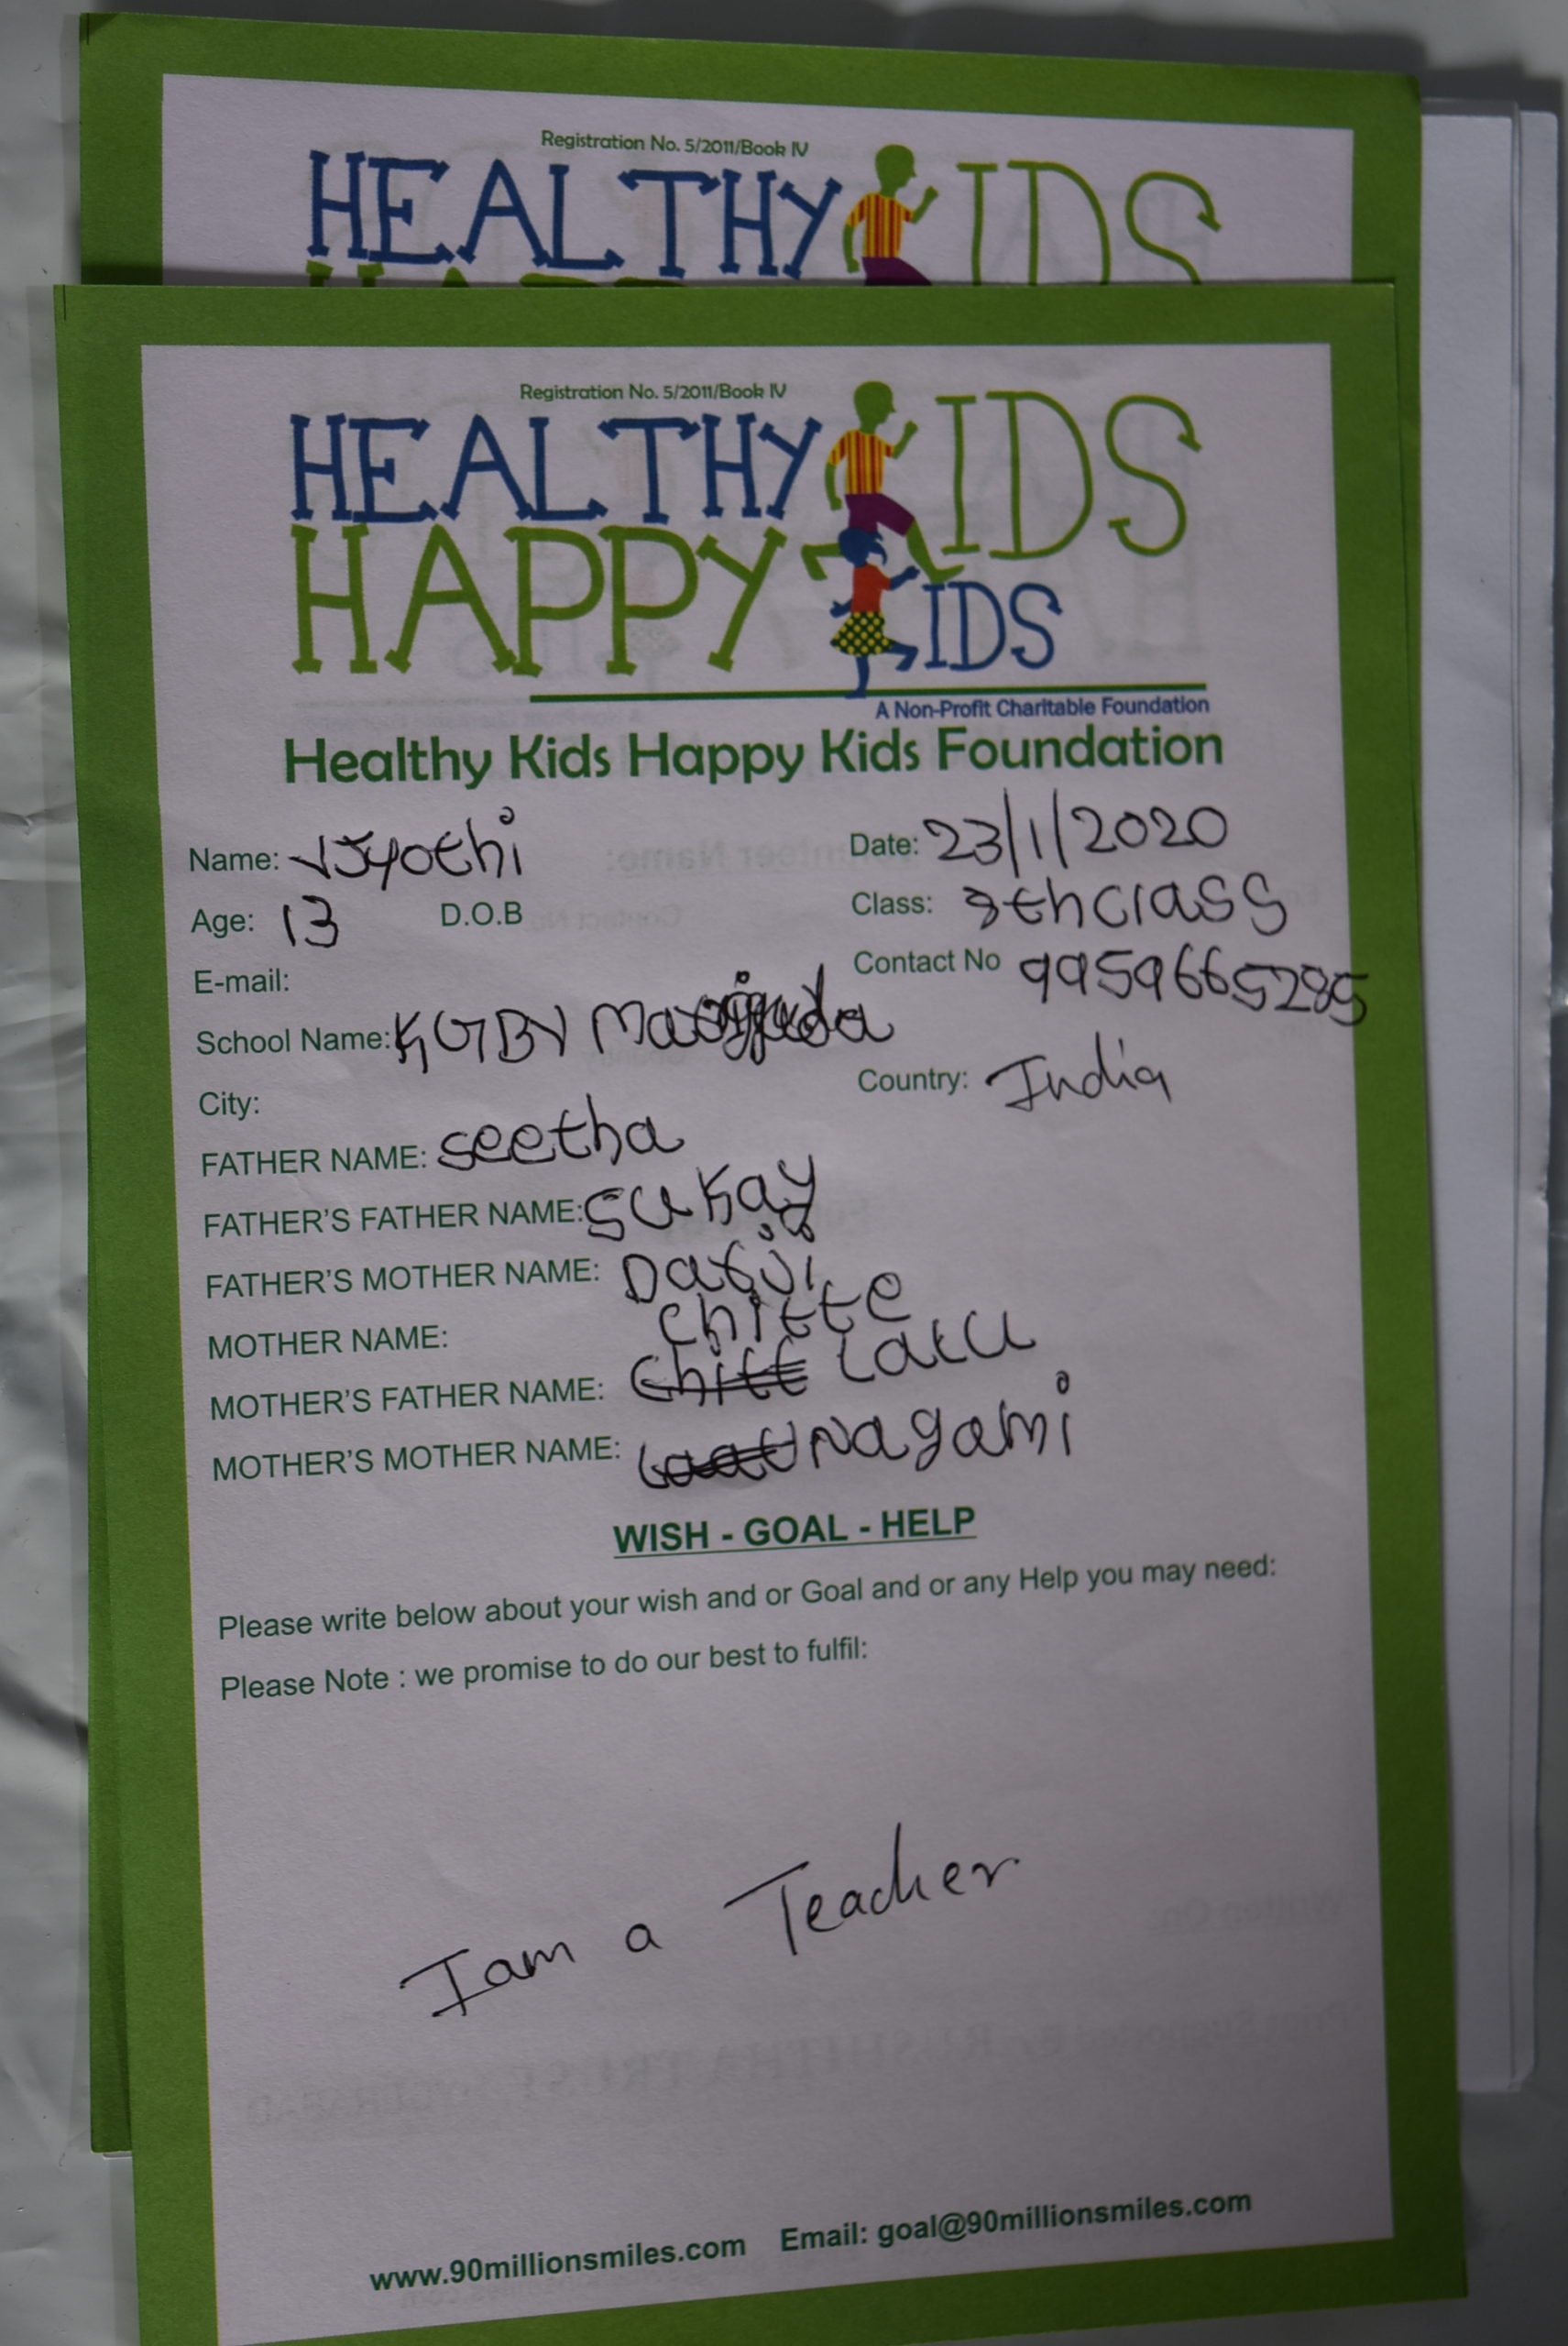 Registration No. 5/2011/Book IV
HEALTHY KIDS
Registration No. 5/2011/Book IV
HEALTHY KIDS
HAPPY KIDS
A Non-Profit Charitable Foundation
Healthy Kids Happy Kids Foundation
Name: V Jyothi Date: 23/1/2020
Age: 13 D.O.B Class: 8th class
E-mail: Contact No 9959665285
School Name: KGBV
City: Country: India
FATHER NAME: seetha
FATHER'S FATHER NAME: SUKAY
FATHER'S MOTHER NAME:
MOTHER NAME: chitte
MOTHER'S FATHER NAME:
MOTHER'S MOTHER NAME: Nagami
WISH - GOAL - HELP
Please write below about your wish and or Goal and or any Help you may need:
Please Note : we promise to do our best to fulfil:
I am a Teacher
www.90millionsmiles.com Email: goal@90millionsmiles.com